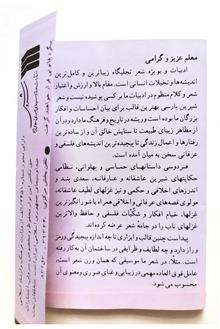 معلم عزیز و گرامی
ادبیات و بویژه شعر تجلیگاه زیباترین و کامل‌ترین
اندیشه‌ها و تخیلات انسانی است. مقام والا و ارزش و اعتبار
شعر و کلام منظوم در ادبیات ما بر کسی پوشیده نیست و شعر
شیرین پارسی بهترین قالب برای بیان احساسات و افکار
بزرگان ما بوده است و ریشه در تاریخ و فرهنگ ما دارد و در آن
از مظاهر زیبای طبیعت تا ستایش خالق آن و از ساده‌ترین
رفتارها و اعمال زندگی تا پیچیده‌ترین اندیشه‌های فلسفی و
عرفانی سخن به میان آمده است.
فردوسی داستانهای حماسی و پهلوانی، نظامی
حکایتهای شیرین عاشقانه و عارفانه، سعدی پند و
اندرزهای اخلاقی و حکمی و نیز غزلهای لطیف عاشقانه،
مولوی قصه‌های عرفانی و اخلاقی همراه با شورانگیزترین
غزلها، خیام افکار و شکّیات فلسفی و حافظ والاترین
غزلهای ناب را در جامهٔ شعر عرضه کرده‌اند.
پیداست چنین قالب و ابزاری تا چه اندازه پیچیدگی و رمز
و راز دارد و چه لطایف و ظرایفی در ساختمان آن به کار رفته
است. مثلاً، در شعر ما موسیقی که همان وزن شعر است،
عامل فوق‌العاده مهمی در زیبایی و غنای صوری و معنوی آن
محسوب می‌شود.